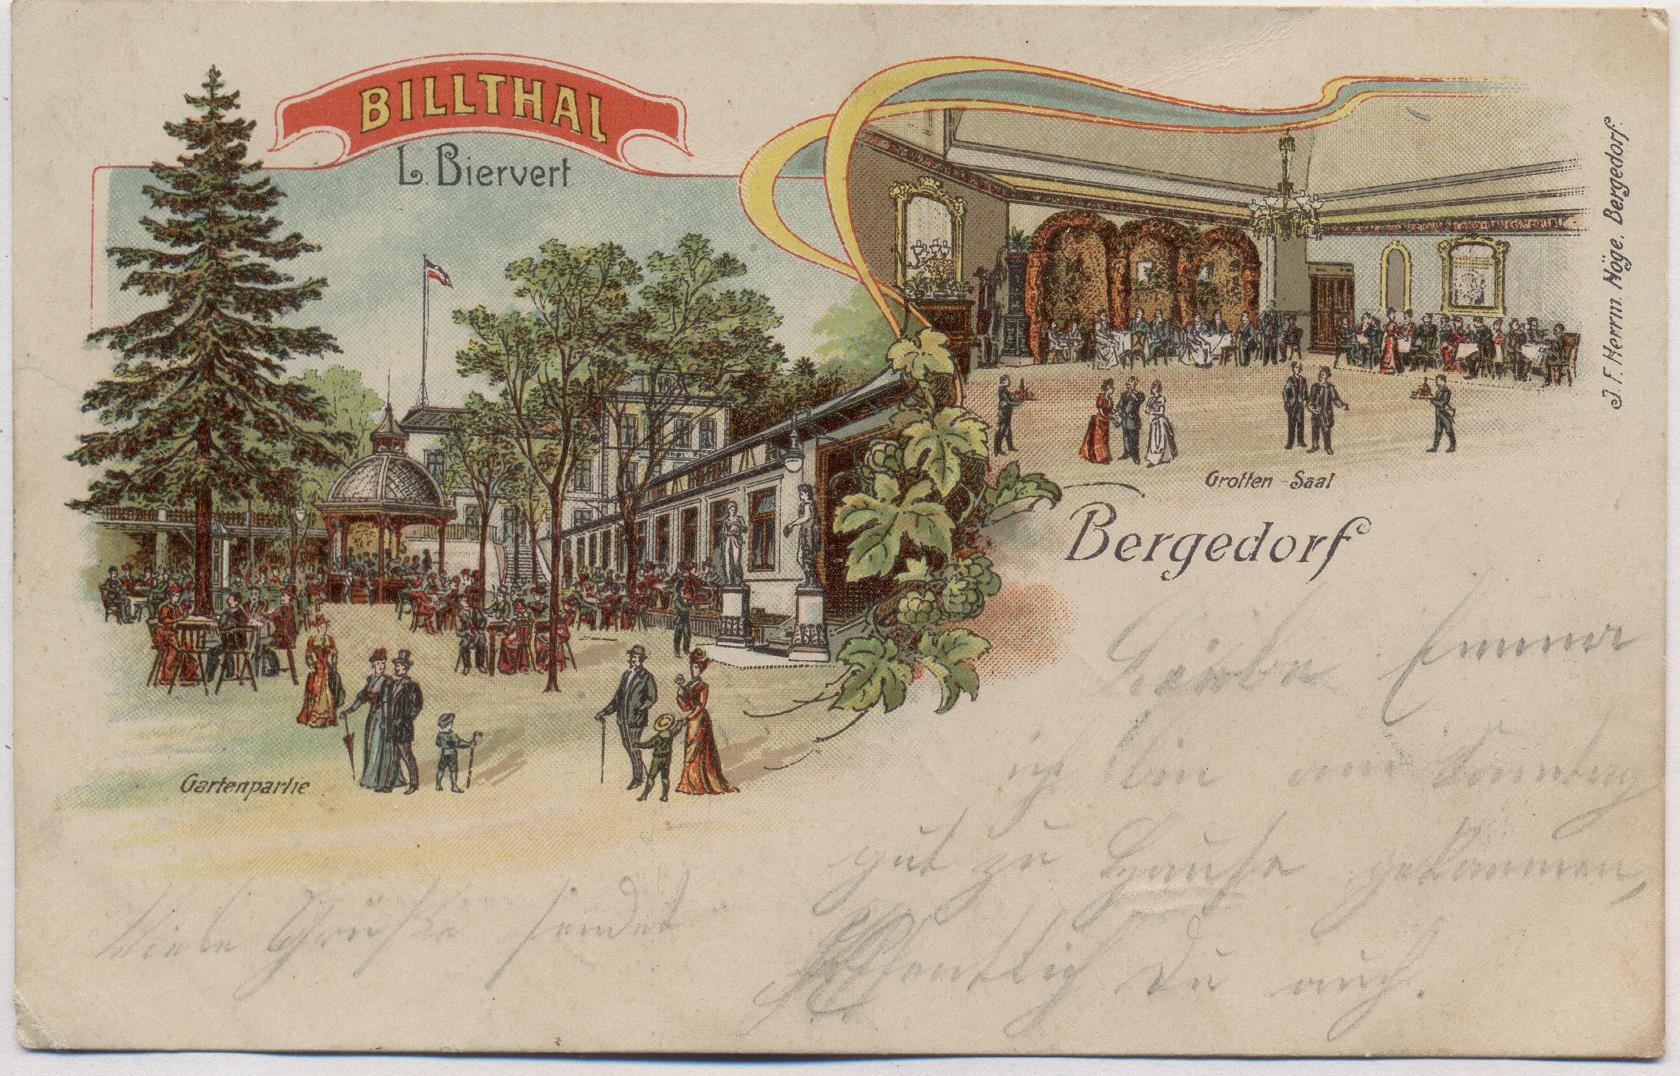 BILLTHAL
L. Biervert
Grotten-Saal
J. F. Herrm. Nöge, Bergedorf.
Bergedorf
Gartenpartie
Liebe Emma
ich bin am Sonntag
gut zu Hause gekommen,
hoffentlich Du auch.
Viele Grüße sendet